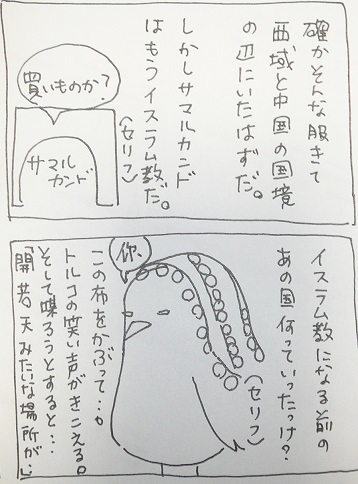 確かそんな服きて
西域と中国の国境
の辺にいたはずだ。
しかしサマルカンド
はもうイスラム教だ。
(セリフ)
買いものか?
サマル
カンド
イスラム教になる前の
あの国何っていったっけ?
(セリフ)
你、
この布をかぶって…。
トルコの笑い声がきこえる。
そして喋ろうとすると…
「開若天みたいな場所が…」